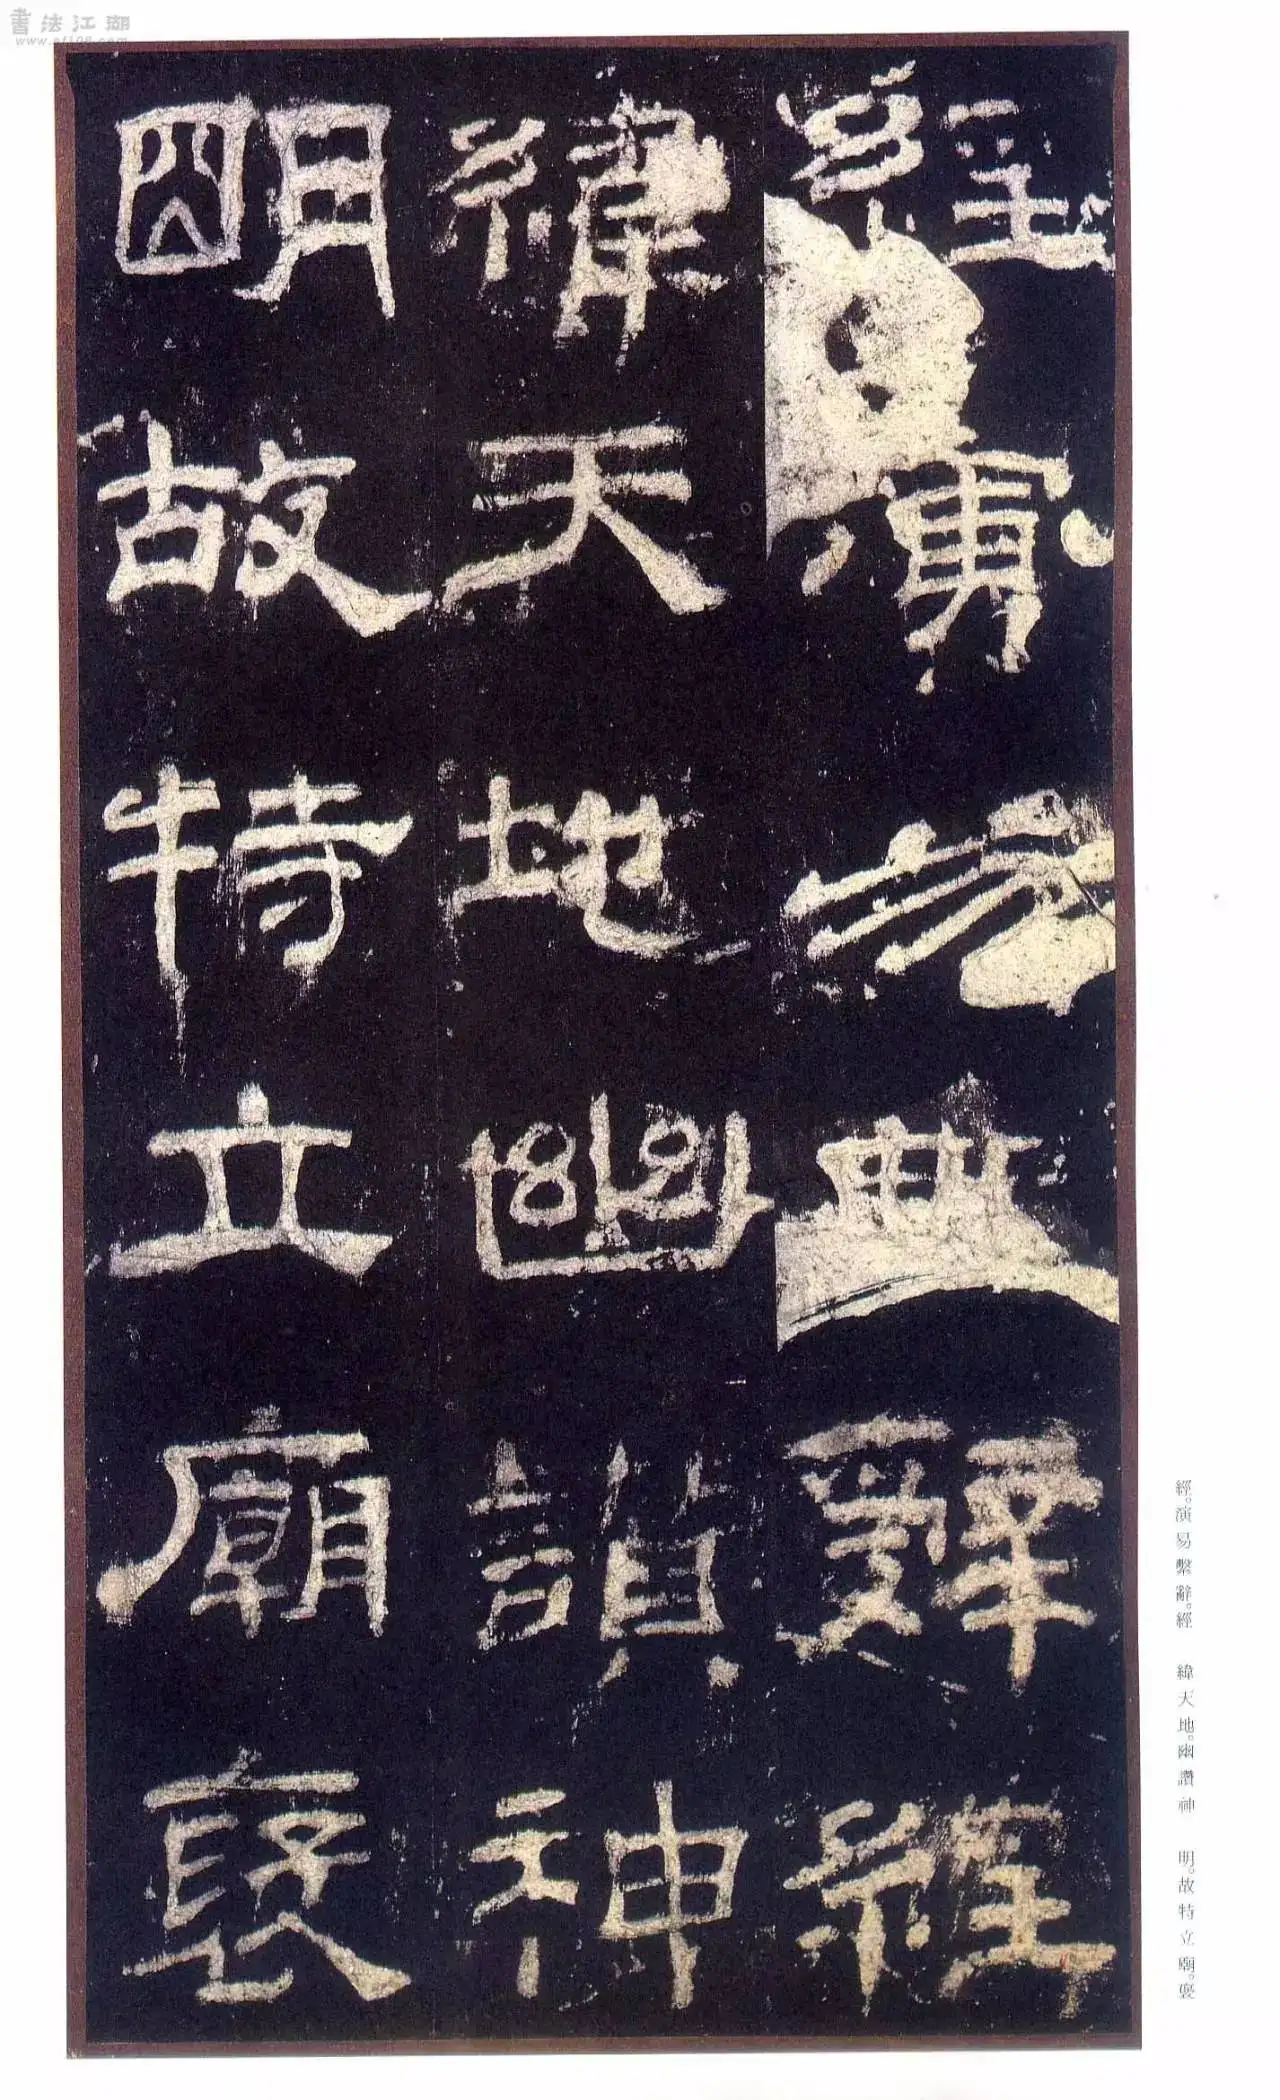 經演易繫辭經
緯天地幽讚神
明故特立廟褒
經。演易繫辭。經 緯天地。幽讚神 明。故特立廟。褒
書法江湖